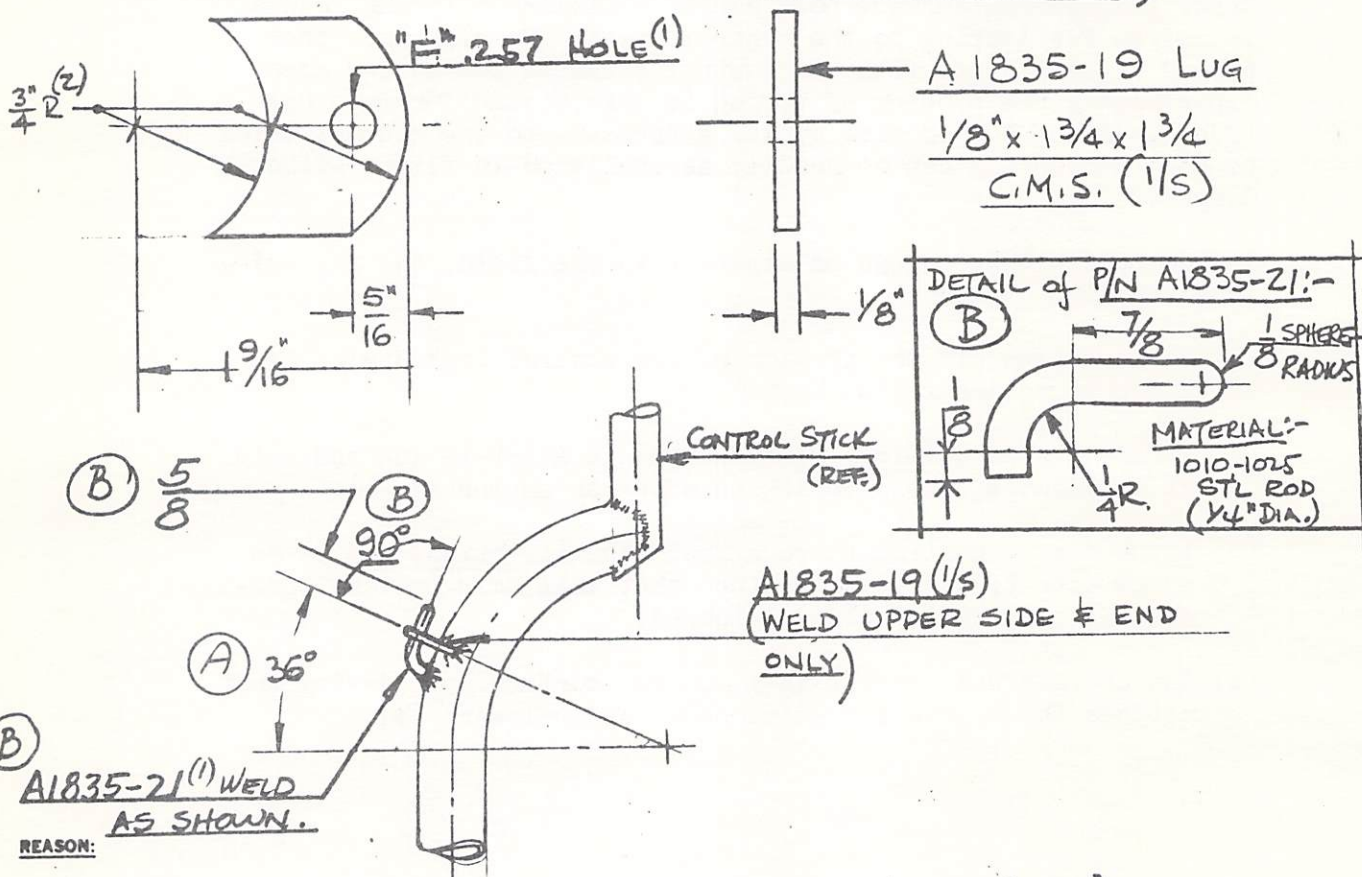 "F" .257 HOLE (1)
3/4" R (2)
A1835-19 LUG
1/8" x 1 3/4 x 1 3/4
C.M.S. (1/S)
5/16"
1 9/16"
1/8"
DETAIL of P/N A1835-21:-
B
7/8
1/8 SPHERE
RADIUS
1/8
MATERIAL:-
1010-1025
STL ROD
(1/4" DIA.)
1/4 R.
CONTROL STICK
(REF.)
B 5/8
B
90°
A 36°
A1835-19 (1/S)
(WELD UPPER SIDE & END
ONLY)
B
A1835-21 (1) WELD
AS SHOWN.
REASON: